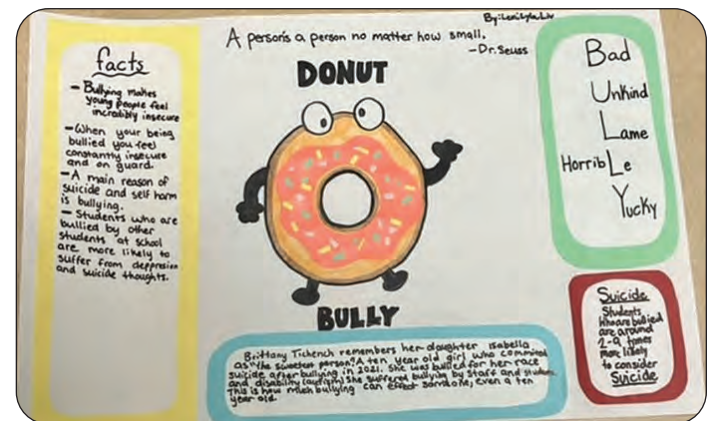 By: Lexi, Lyla, Liv
A person's a person no matter how small.
-Dr. Seuss
DONUT
BULLY
facts
- Bullying makes
young people feel
incredibly insecure
- When your being
bullied you feel
constantly insecure
and on guard.
- A main reason of
suicide and self harm
is bullying.
- Students who are
bullied by other
students at school
are more likely to
suffer from deppresion
and suicide thoughts.
Bad
Unkind
Lame
HorribLe
Yucky
Suicide
Students
who are bullied
are around
2-9 times
more likely
to consider
Suicide
Brittany Tichench remembers her daughter Isabella
as "the sweetest person". A ten year old girl who commited
suicide after bullying in 2021. She was bullied for her race
and disability (autism) she suffered bullying by staff and students.
This is how much bullying can effect someone, even a ten
year old.